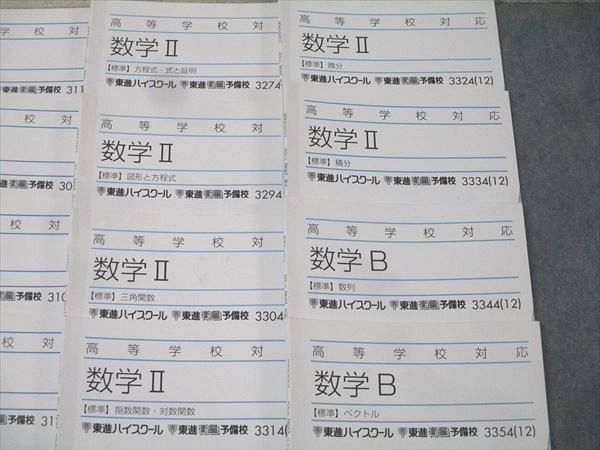 校 対
311
校 対
30
校 対
310
校 対
31
高 等 学 校 対
数学Ⅱ
【標準】方程式・式と証明
東進ハイスクール 東進衛星予備校 3274
高 等 学 校 対
数学Ⅱ
【標準】図形と方程式
東進ハイスクール 東進衛星予備校 3294
高 等 学 校 対
数学Ⅱ
【標準】三角関数
東進ハイスクール 東進衛星予備校 3304
高 等 学 校 対
数学Ⅱ
【標準】指数関数・対数関数
東進ハイスクール 東進衛星予備校 3314(
高 等 学 校 対 応
数学Ⅱ
【標準】微分
東進ハイスクール 東進衛星予備校 3324(12)
高 等 学 校 対 応
数学Ⅱ
【標準】積分
東進ハイスクール 東進衛星予備校 3334(12)
高 等 学 校 対 応
数学B
【標準】数列
東進ハイスクール 東進衛星予備校 3344(12)
高 等 学 校 対 応
数学B
【標準】ベクトル
東進ハイスクール 東進衛星予備校 3354(12)